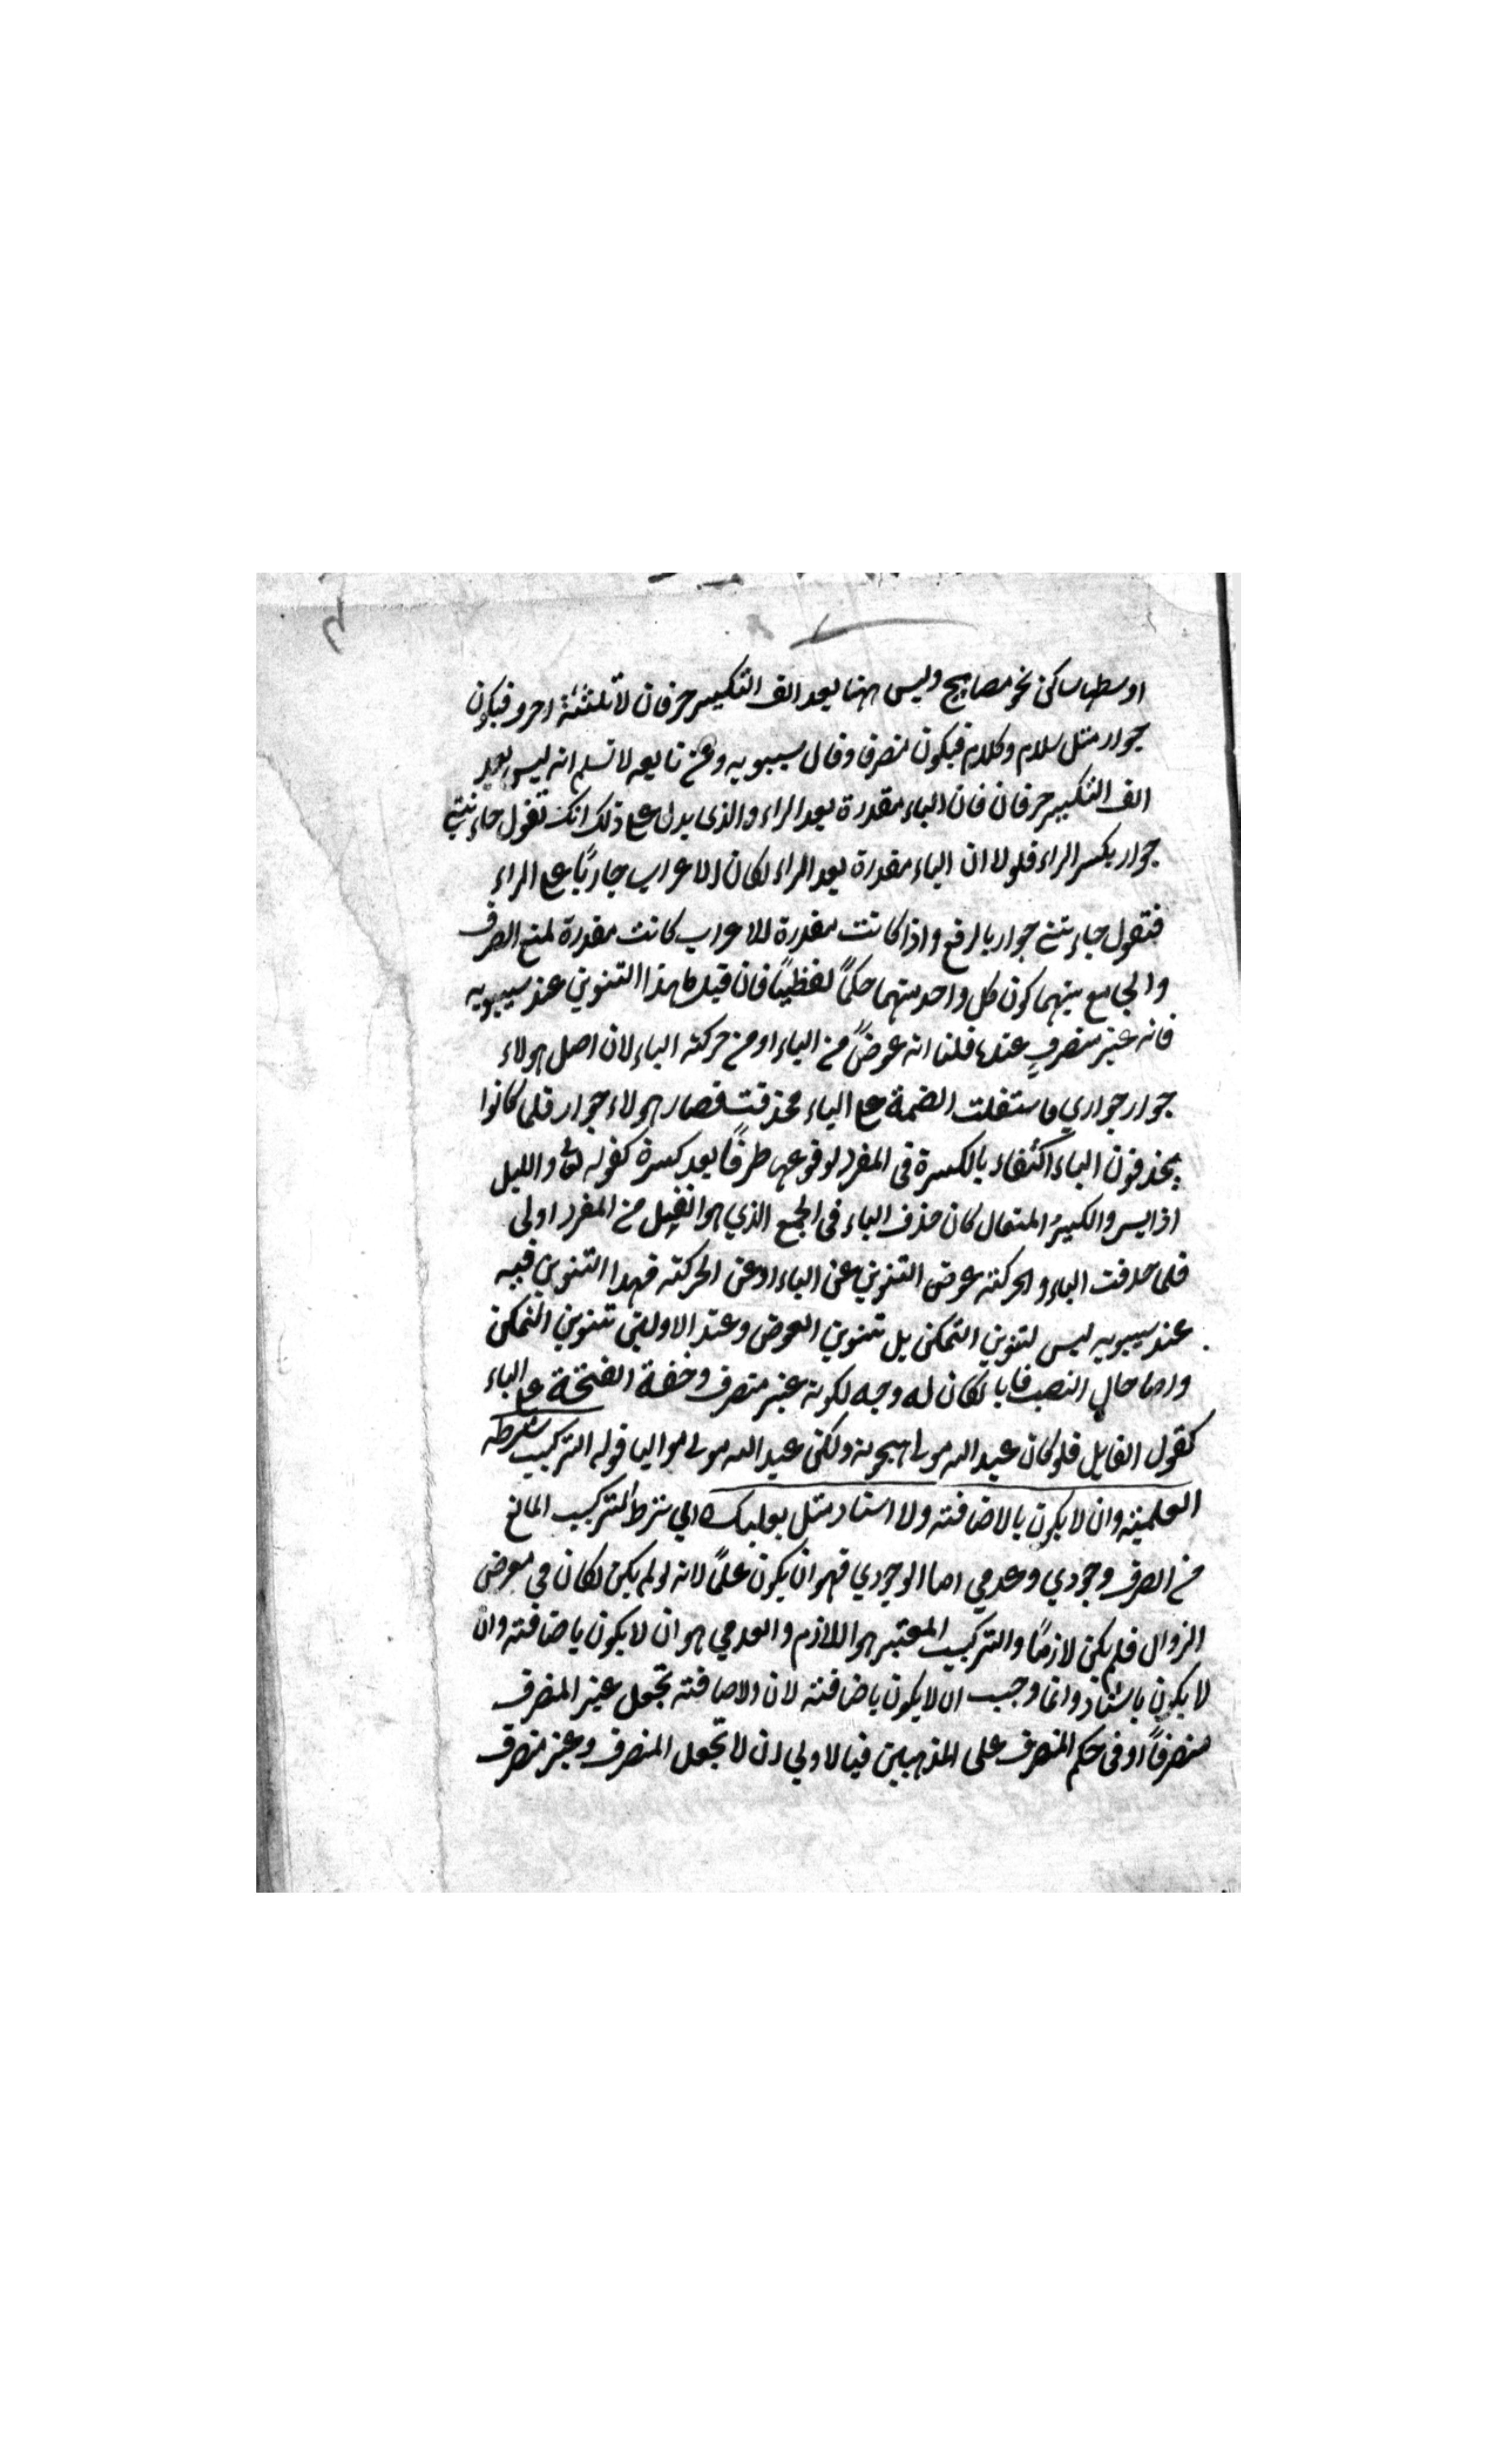 اوسطها ساكن نحو مصابيح وليس ههنا بعد الف التكسير حرفان لا ثلثة احرف فيكون
جوار مثل سلام وكلام فيكون منصرفا وقال سيبويه ومن تابعه لا نسلم انه ليس بعد
الف التكسير حرفان فان الياء مقدرة بعد الراء والذى يدل على ذلك انك تقول جاءتنى
جوار بكسر الراء فلولا ان الياء مقدرة بعد الراء لكان الاعراب جاريًا على الراء
فتقول جاءتنى جوار بالرفع واذا كانت مقدرة للاعراب كانت مقدرة لمنع الصرف
والجامع بينهما كون كل واحد منهما حكمًا لفظيًا فان قيل ما هذا التنوين عند سيبويه
فانه غير منصرفٍ عنده قلنا انه عوضً من الياء او من حركة الياء لان اصل هولاء
جوار جواري فاستثقلت الضمة على الياء فحذفت فصار هولاء جوار فلما كانوا
يحذفون الياء اكتفاء بالكسرة فى المفرد لوقوعها طرفًا بعد كسرة كقوله تعالى والليل
اذا يسر والكبيرُ المتعال كان حذف الياء فى الجمع الذي هو اثقل من المفرد اولى
فلما حذفت الياء والحركة عوض التنوين عن الياء او عن الحركة فهذا التنوين فيه
عند سيبويه ليس لتنوين التمكن بل تنوين العوض وعند الاولين تنوين التمكن
واما حال النصب فايا لكان له وجه لكونه غير منصرف وخفة الفتحة على الياء
كقول القايل فلو كان عبد الله مولى هجوته ولكن عبد الله مولى مواليا قوله التركيب شرطه
العلمية وان لا يكون بالاضافة ولا اسناد مثل بعلبك اي شرط التركيب المانع
من الصرف وجودي وعدمي اما الوجودي فهو ان يكون علمًا لانه لو لم يكن لكان في معرض
الزوال فلم يكن لازمًا والتركيب المعتبر هو اللازم والعدمي هو ان لا يكون باضافة وان
لا يكون باسناد وانما وجب ان لا يكون باضافة لان الاضافة تجعل غير المنصرف
منصرفًا او فى حكم المنصرف على المذهبين فبالاولى ان لا تجعل المنصرف وغير منصرف